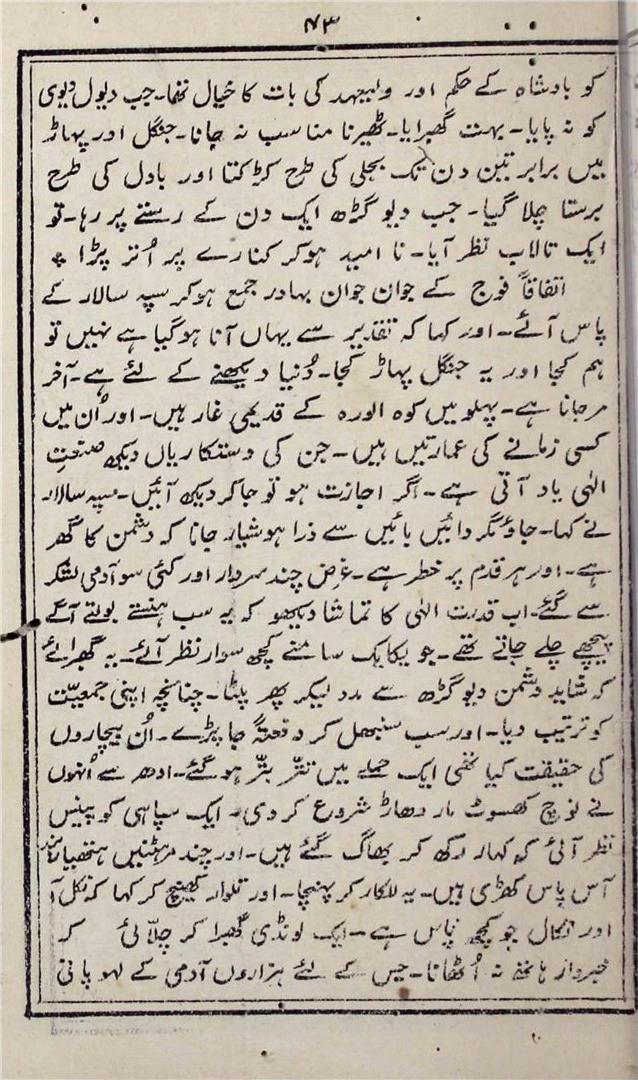 ۴۳
کو بادشاہ کے حکم اور ولیعہد کی بات کا خیال تھا۔ جب دیول دیوی
کو نہ پایا۔ بہت گھبرایا۔ ٹھیرنا مناسب نہ جانا۔ جنگل اور پہاڑ
میں برابر تین دن تک بجلی کی طرح کڑکتا اور بادل کی طرح
برستا چلا گیا۔ جب دیوگڑھ ایک دن کے رستے پر رہا۔ تو
ایک تالاب نظر آیا۔ نا امید ہوکر کنارے پر اُتر پڑا ؞
اتفاقاً فوج کے جوان جوان بہادر جمع ہوکر سپہ سالار کے
پاس آئے۔ اور کہا کہ تقدیر سے یہاں آنا ہوگیا ہے نہیں تو
ہم کجا اور یہ جنگل پہاڑ کجا۔ دُنیا دیکھنے کے لئے ہے۔ آخر
مرجانا ہے۔ پہلو میں کوہ الورہ کے قدیمی غار ہیں۔ اور اُن میں
کسی زمانے کی عمارتیں ہیں۔ جن کی دستکاریاں دیکھ صنعتِ
الہٰی یاد آتی ہے۔ اگر اجازت ہو تو جاکر دیکھ آئیں۔ سپہ سالار
نے کہا۔ جاؤ مگر دائیں بائیں سے ذرا ہوشیار جانا کہ دشمن کا گھر
ہے۔ اور ہر قدم پر خطر ہے۔ غرض چند سردار اور کئی سو آدمی لشکر
سے گئے۔ اب قدرت الہٰی کا تماشا دیکھو کہ یہ سب ہنستے بولتے آگے
پیچھے چلے جاتے تھے۔ جو یکایک سامنے کچھ سوار نظر آئے۔ یہ گھبرائے
کہ شاید دشمن دیوگڑھ سے مدد لیکر پھر پلٹا۔ چنانچہ اپنی جمعیّت
کو ترتیب دیا۔ اور سب سنبھل کر دفعتہً جا پڑے۔ اُن بیچاروں
کی حقیقت کیا تھی ایک حملے میں تتّر بتّر ہو گئے۔ ادھر سے اُنہوں
نے نوچ کھسوٹ مار دھاڑ شروع کر دی۔ ایک سپاہی کو پینس
نظر آئی کہ کہار رکھ کر بھاگ گئے ہیں۔ اور چند مرہٹنیں ہتھیار
آس پاس کھڑی ہیں۔ یہ للکار کر پہنچا۔ اور تلوار کھینچ کر کہا کہ نکل آ
اور نکال جو کچھ پاس ہے۔ ایک لونڈی گھبرا کر چلّائی کہ
خبردار ہاتھ نہ اُٹھانا۔ جس کے لئے ہزاروں آدمی کے لہو پانی